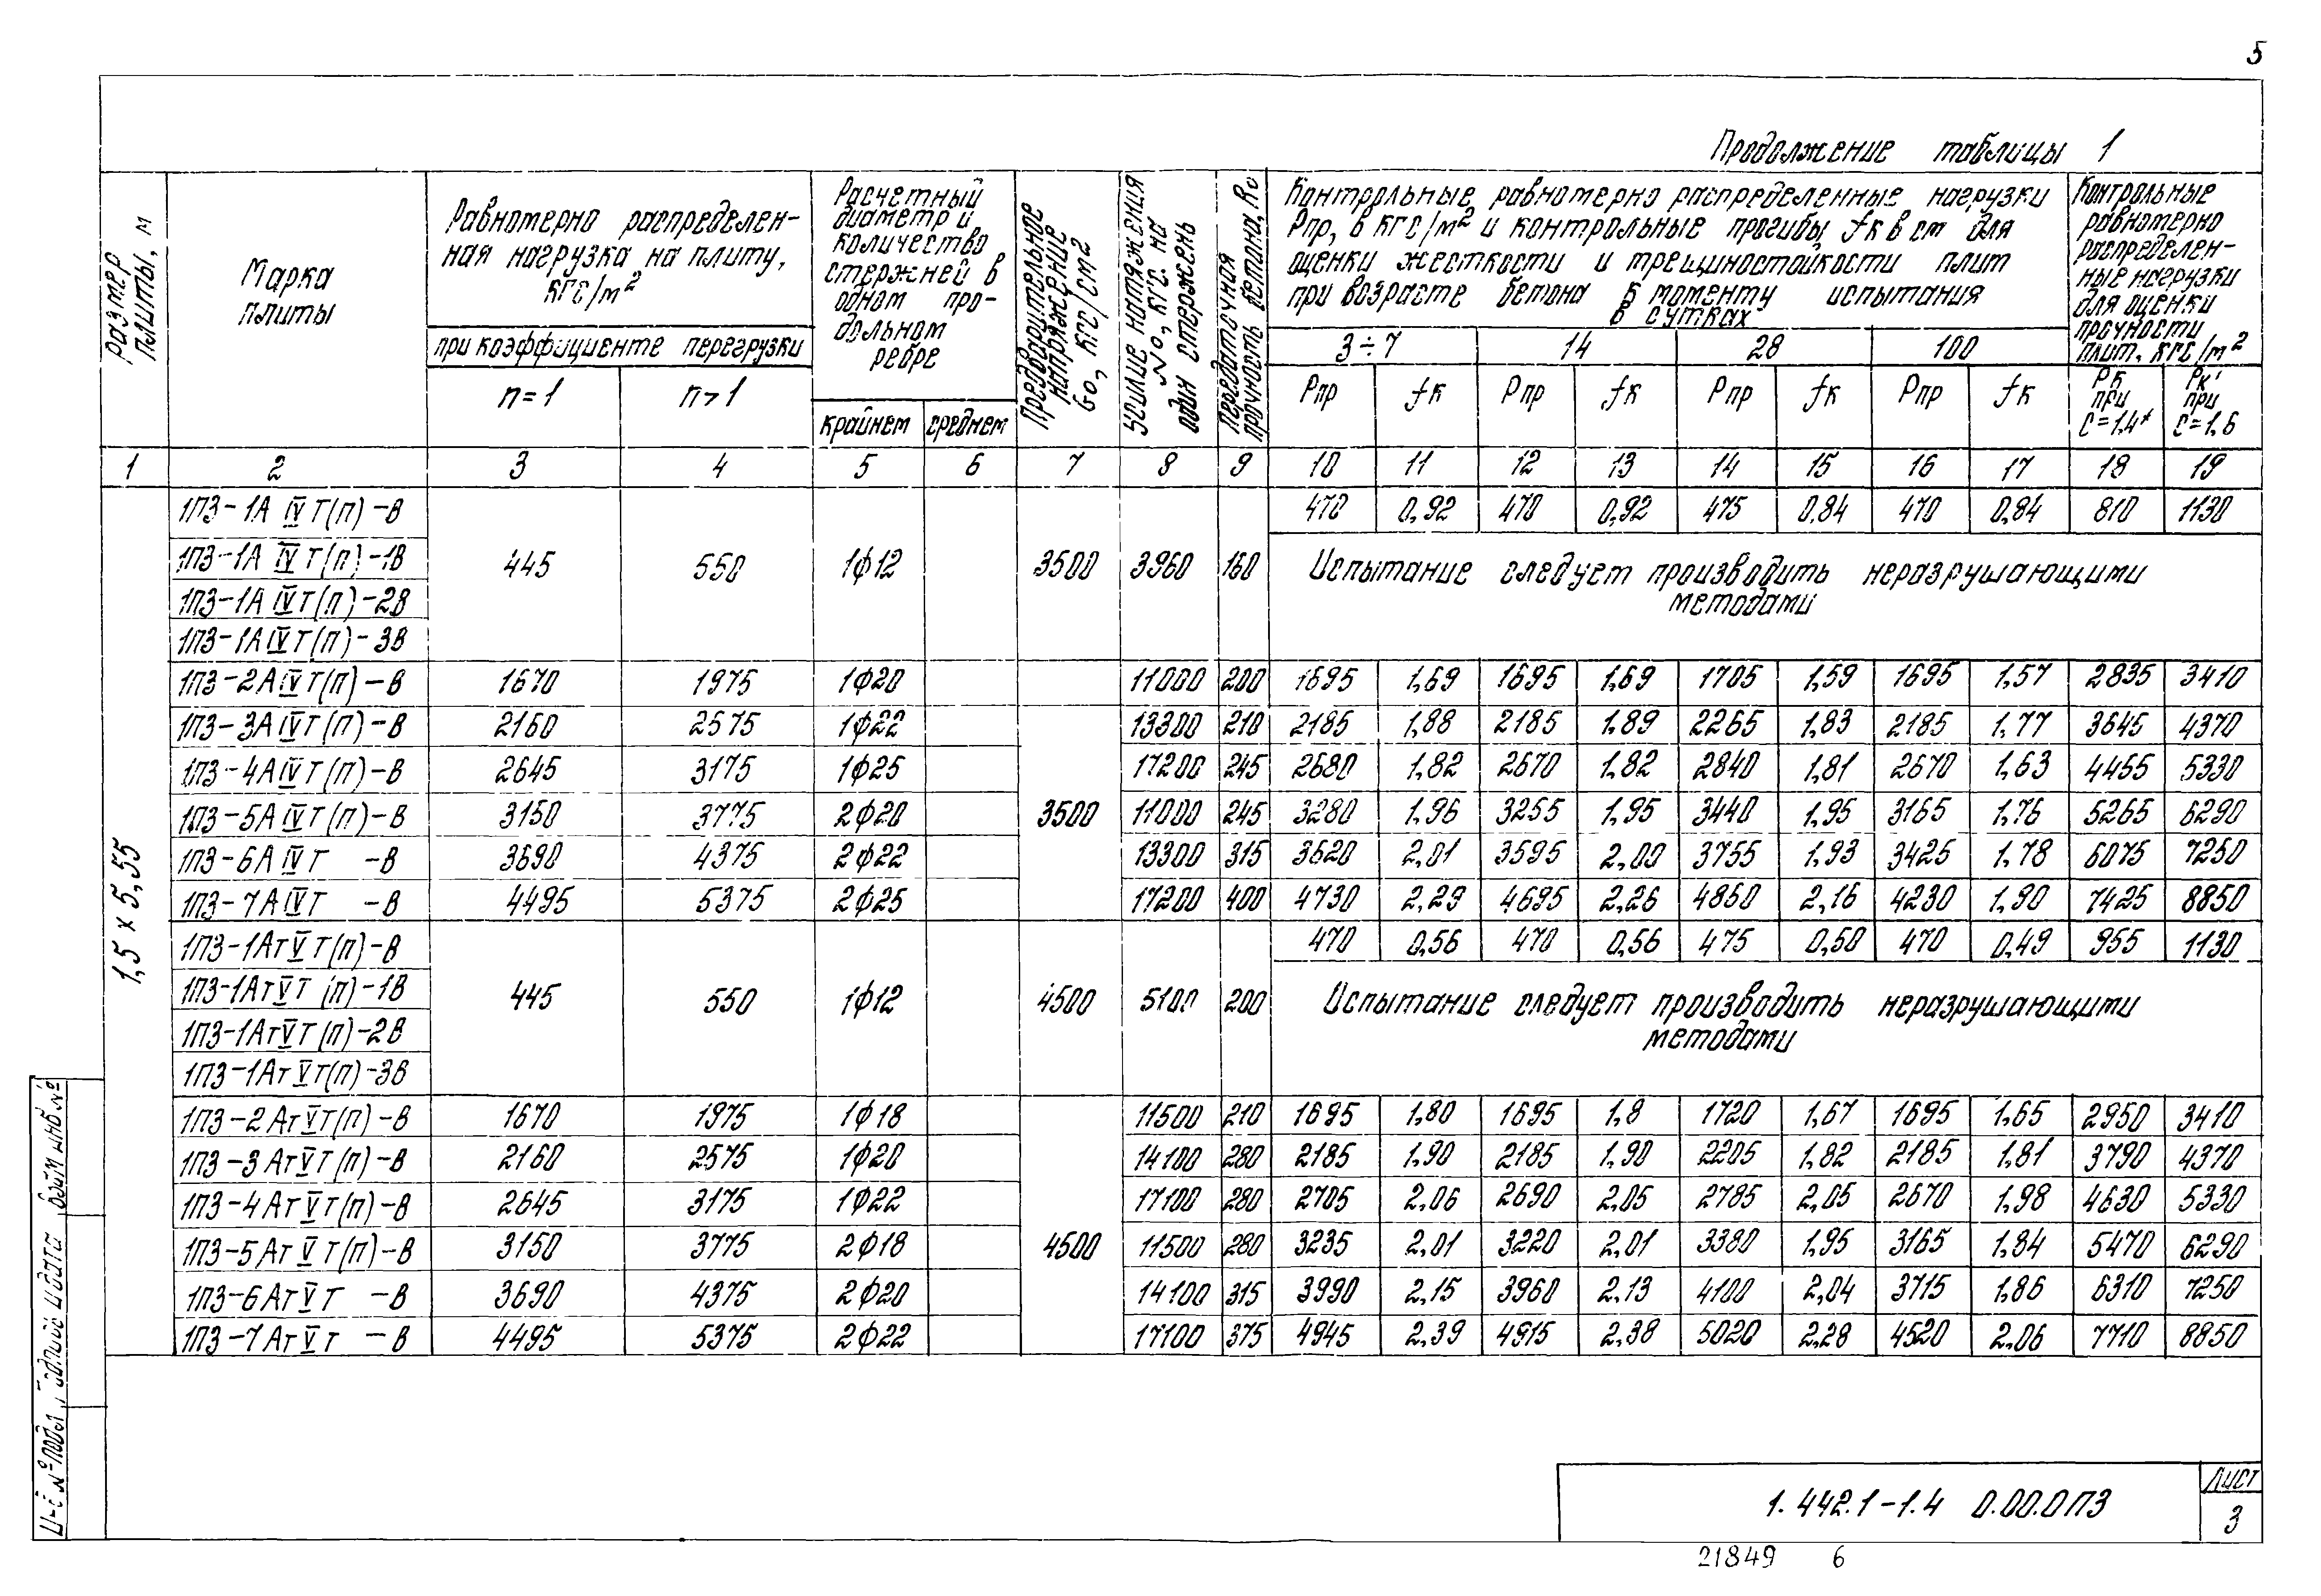 5
Продолжение таблицы 1
Размер плиты, м
Марка плиты
Равномерно распределен-
ная нагрузка на плиту,
кгс/м²
при коэффициенте перегрузки
n=1
n>1
Расчетный
диаметр и
количество
стержней в
одном про-
дольном
ребре
крайнем
среднем
Предварительное
напряжение
σo, кгс/см2
Усилие натяжения
No, кгс на
один стержень
Передаточная
прочность бетона, Ro
Контрольные равномерно распределенные нагрузки
Рпр, в кгс/м² и контрольные прогибы fк в см для
оценки жесткости и трещиностойкости плит
при возрасте бетона к моменту испытания
в сутках
3÷7 14 28 100
Рпр fк Рпр fк Рпр fк Рпр fк
Контрольные
равномерно
распределен-
ные нагрузки
для оценки
прочности
плит, кгс/м²
Рк
при
С=1,4*
Рк'
при
С=1,6
1 2 3 4 5 6 7 8 9 10 11 12 13 14 15 16 17 18 19
1,5 x 5,55
1П3-1А IV Т(П)-В 470 0,92 470 0,92 475 0,84 470 0,84 810 1130
1П3-1А IV Т(П)-1В 445 550 1ф12 3500 3960 160 Испытание следует производить неразрушающими
методами
1П3-1А IV Т(П)-2В
1П3-1А IV Т(П)-3В
1П3-2А IV Т(П)-В 1670 1975 1ф20 11000 200 1695 1,69 1695 1,69 1705 1,59 1695 1,57 2835 3410
1П3-3А IV Т(П)-В 2160 2575 1ф22 13300 210 2185 1,88 2185 1,89 2265 1,83 2185 1,77 3645 4370
1П3-4А IV Т(П)-В 2645 3175 1ф25 17200 245 2680 1,82 2670 1,82 2840 1,81 2670 1,63 4455 5330
1П3-5А IV Т(П)-В 3150 3775 2ф20 3500 11000 245 3280 1,96 3255 1,95 3440 1,95 3165 1,76 5265 6290
1П3-6А IV Т -В 3690 4375 2ф22 13300 315 3620 2,01 3595 2,00 3755 1,93 3425 1,78 6075 7250
1П3-7А IV Т -В 4495 5375 2ф25 17200 400 4730 2,29 4695 2,26 4860 2,16 4230 1,90 7425 8850
1П3-1Ат V Т(П)-В 470 0,56 470 0,56 475 0,50 470 0,49 955 1130
1П3-1Ат V Т (П)-1В 445 550 1ф12 4500 5100 200 Испытание следует производить неразрушающими
методами
1П3-1Ат V Т (П)-2В
1П3-1Ат V Т(П)-3В
1П3-2 Ат V Т(П)-В 1670 1975 1ф18 11500 210 1695 1,80 1695 1,8 1720 1,67 1695 1,65 2950 3410
1П3-3 Ат V Т (П)-В 2160 2575 1ф20 14100 280 2185 1,90 2185 1,90 2205 1,82 2185 1,81 3790 4370
1П3-4 Ат V Т(П)-В 2645 3175 1ф22 17100 280 2705 2,06 2690 2,05 2785 2,05 2670 1,98 4630 5330
1П3-5 Ат V Т(П)-В 3150 3775 2ф18 4500 11500 280 3235 2,01 3220 2,01 3380 1,95 3165 1,84 5470 6290
1П3-6 Ат V Т -В 3690 4375 2ф20 14100 315 3990 2,15 3960 2,13 4100 2,04 3715 1,86 6310 7250
1П3-7 Ат V Т -В 4495 5375 2ф22 17100 375 4945 2,39 4915 2,38 5020 2,28 4520 2,06 7710 8850
Взам инв.№
№ подл
1.442.1-1.4 0.00.0ПЗ
Лист
3
21849 6